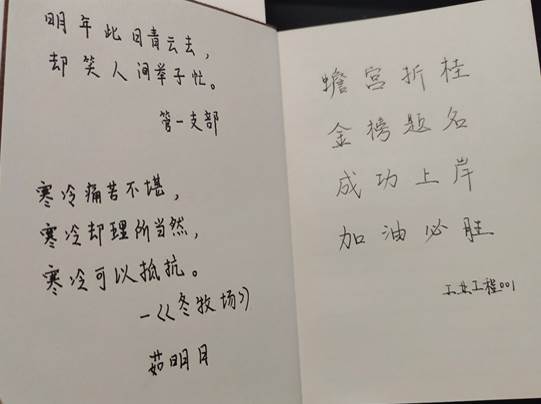 明年此日青云去，
却笑人间举子忙。
管一支部
寒冷痛苦不堪，
寒冷却理所当然，
寒冷可以抵抗。
—《冬牧场》
茹明月
蟾宫折桂
金榜题名
成功上岸
加油必胜
工业工程001